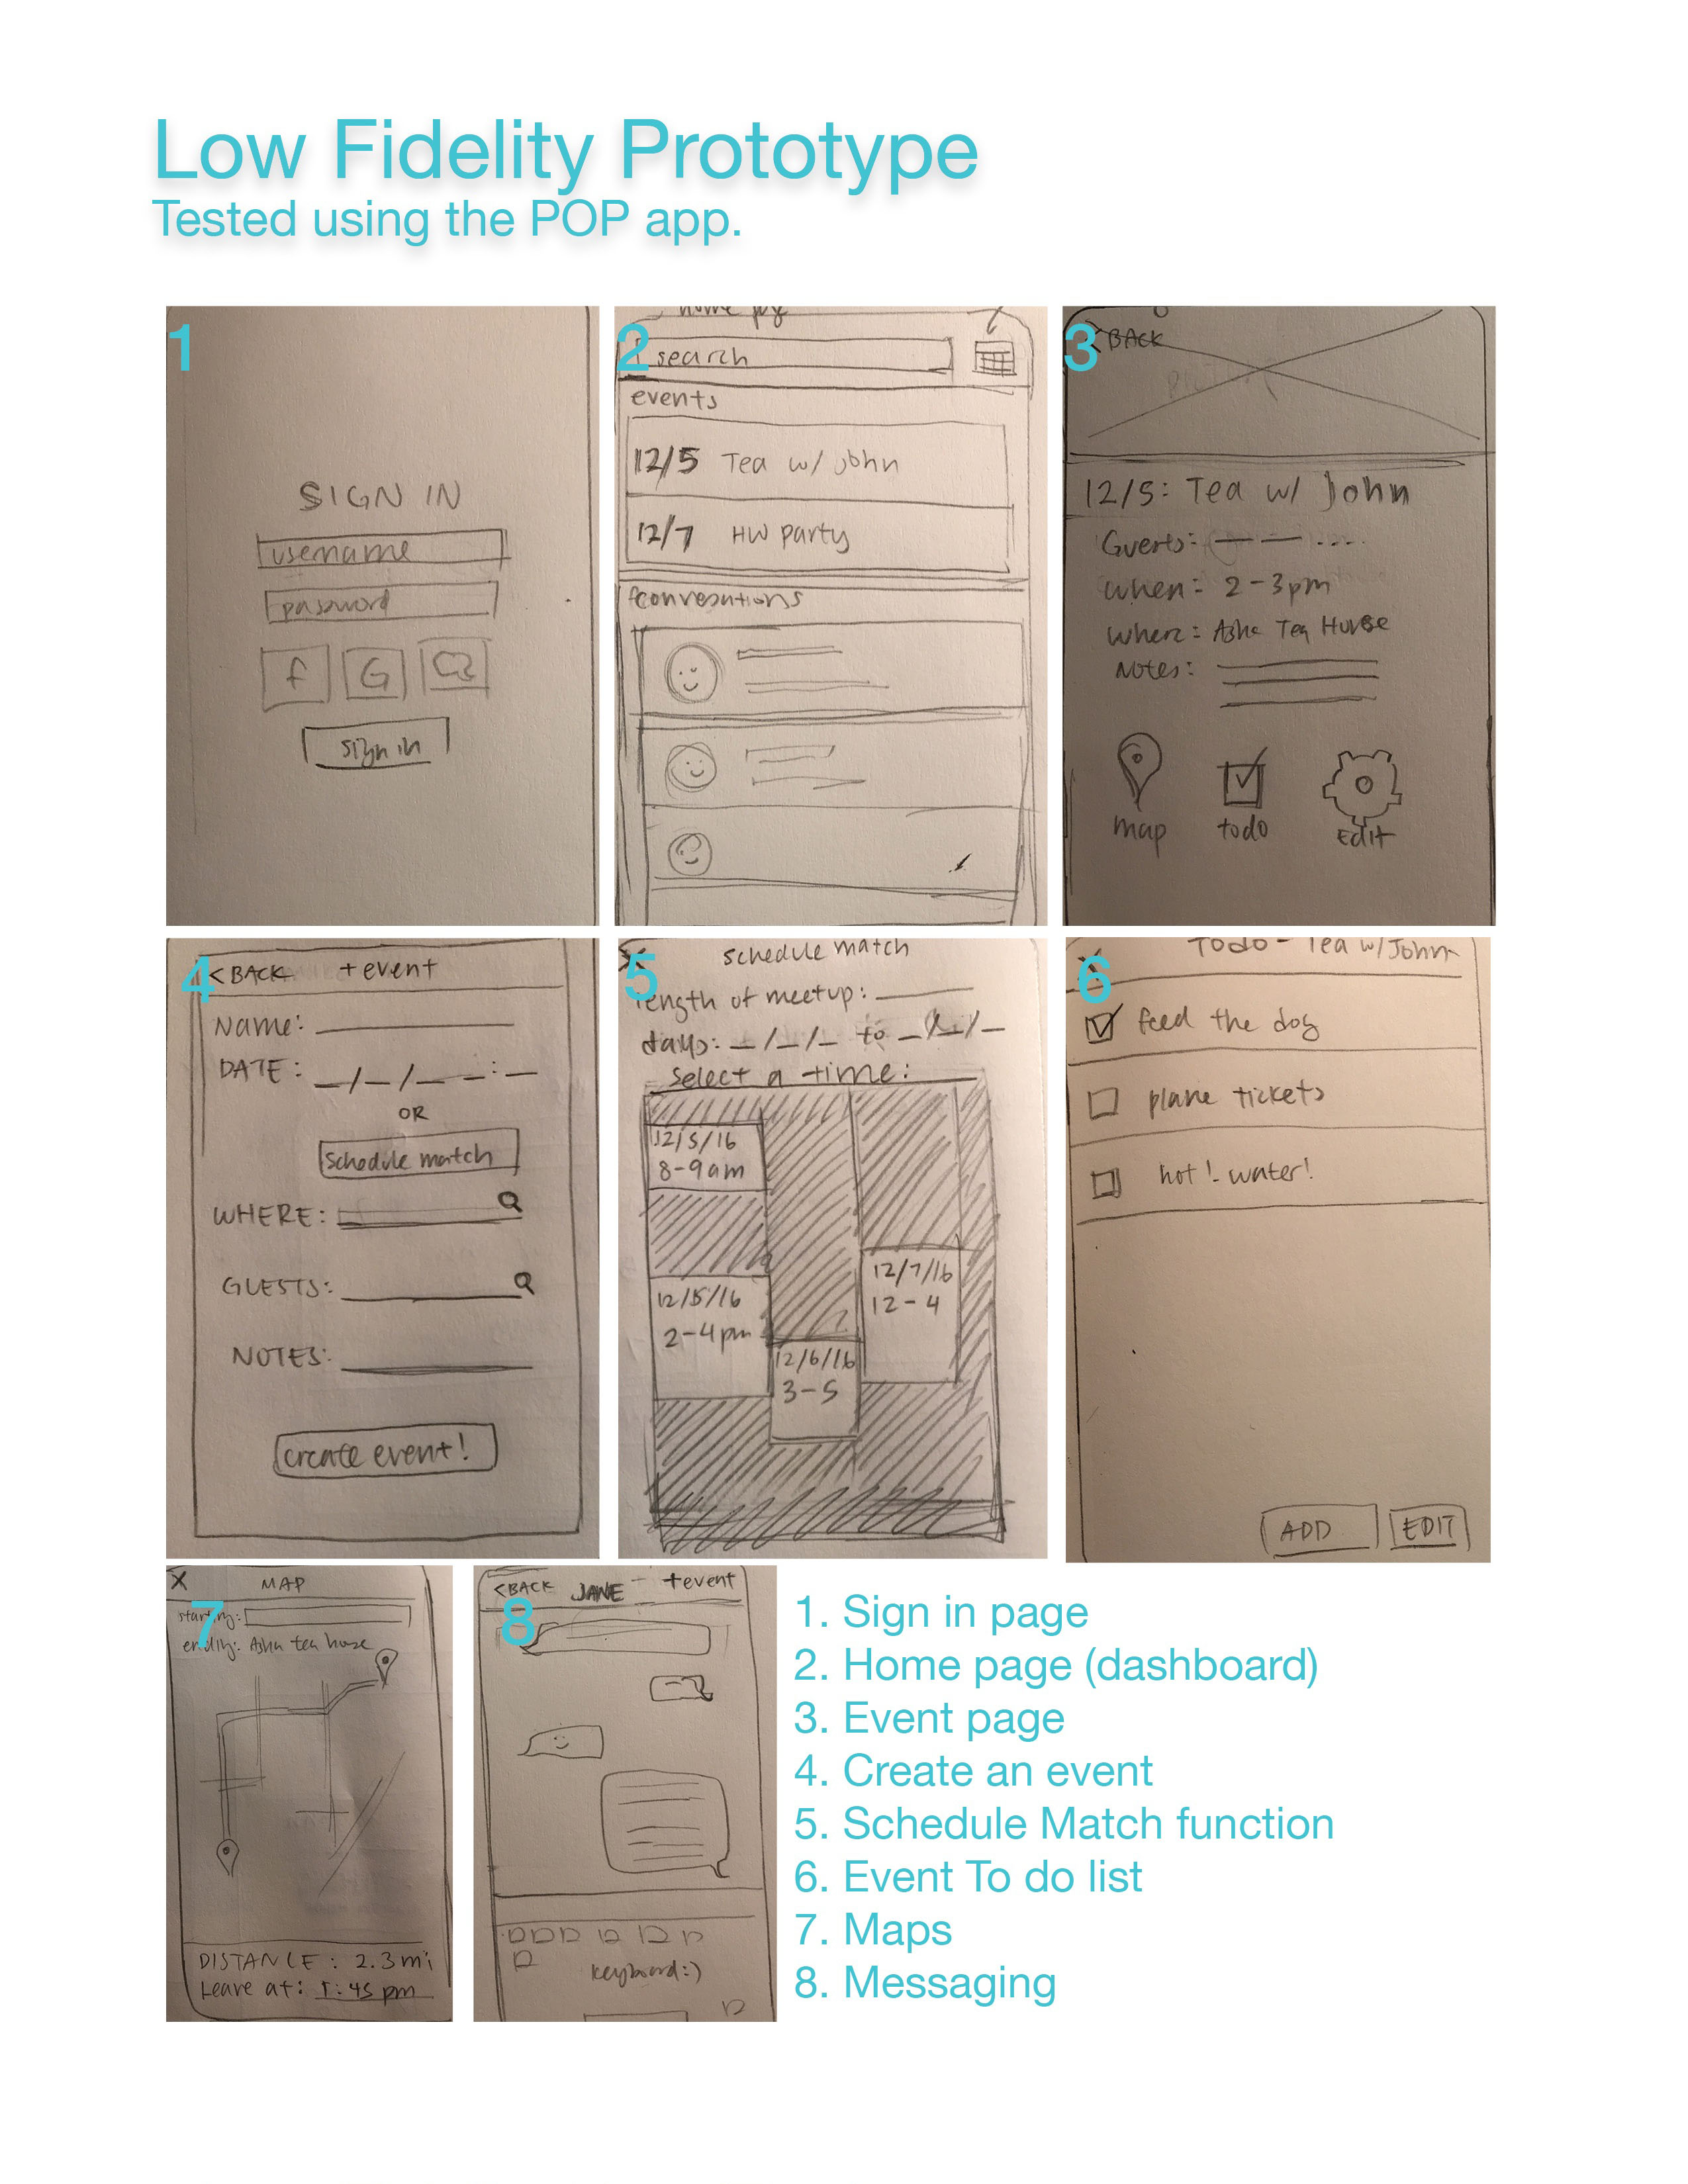 Low Fidelity Prototype
Tested using the POP app.
1
SIGN IN
username
password
f G
sign in
2
home pg
search
events
12/5 Tea w/ John
12/7 HW party
conversations
3
<BACK
12/5: Tea w/ John
Guests:
When: 2-3pm
Where: Asha Tea House
Notes:
map todo Edit
4
<BACK +event
Name:
DATE: _/_/_ _:_
OR
schedule match
WHERE:
GUESTS:
NOTES:
create event!
5
schedule match
length of meetup:
days: _/_/_ to _/_/_
select a time:
12/5/16
8-9am
12/5/16
2-4pm
12/6/16
3-5
12/7/16
12-4
6
Todo- Tea w/John
feed the dog
plane tickets
hot! water!
ADD EDIT
7
X MAP
starting:
ending: Asha tea house
DISTANCE: 2.3 mi
Leave at: 1:45 pm
8
<BACK JANE +event
keyboard:)
1. Sign in page
2. Home page (dashboard)
3. Event page
4. Create an event
5. Schedule Match function
6. Event To do list
7. Maps
8. Messaging